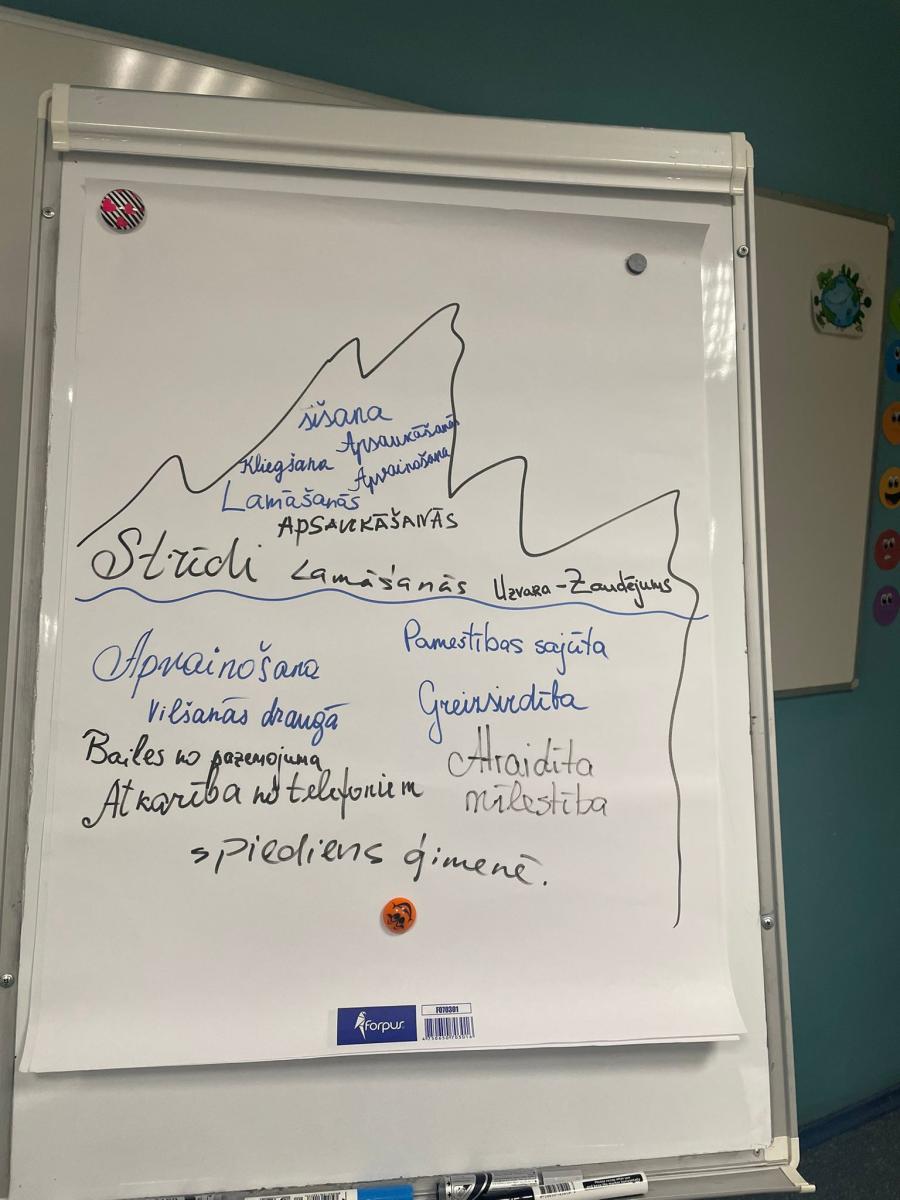 sišana
Apsaukāšanās
Kliegšana
Apvainošana
Lamāšanās
APSAUKĀŠANĀS
Strīdi Lamāšanās Uzvara-Zaudējums
Pamestības sajūta
Apvainošana
Greizsirdība
Vilšanās draugā
Bailes no pazemojuma
Atraidīta
Atkarība no telefoniem
mīlestība
spiediens ģimenē.
forpus
FO70301